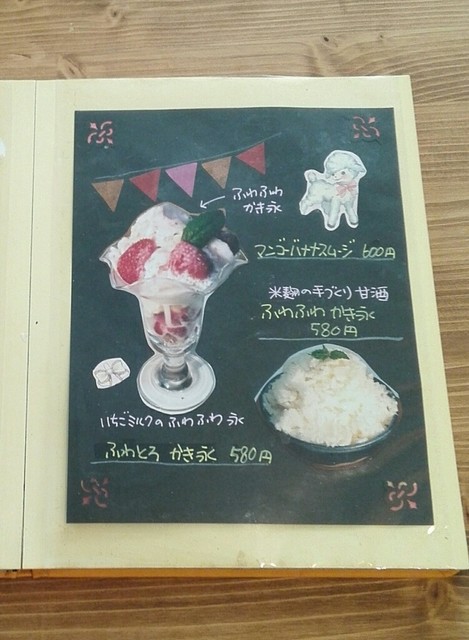 ふわふわ
かき氷
マンゴーバナナスムージ 600円
米麹の手づくり甘酒
ふわふわ かき氷
580円
いちごミルクのふわふわ氷
ふわとろ かき氷 580円